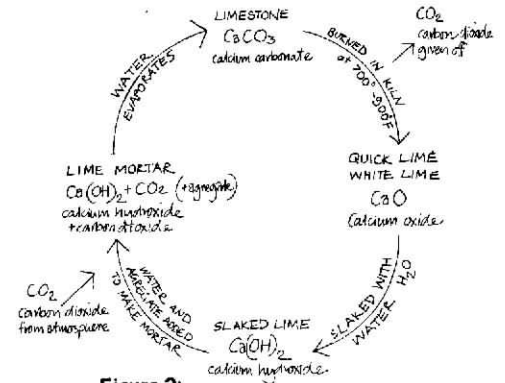 LIMESTONE
CaCO3
calcium carbonate
BURNED IN KILN
at 700°-900°F
CO2
carbon dioxide
given off
QUICK LIME
WHITE LIME
CaO
Calcium oxide
SLAKED WITH
WATER H2O
SLAKED LIME
Ca(OH)2
calcium hydroxide
WATER AND
AGREGATE ADDED
TO MAKE MORTAR
CO2
carbon dioxide
from atmosphere
LIME MORTAR
Ca(OH)2 + CO2 (+agregate)
calcium hydroxide
+carbon dioxide
WATER
EVAPORATES
Figure 2: